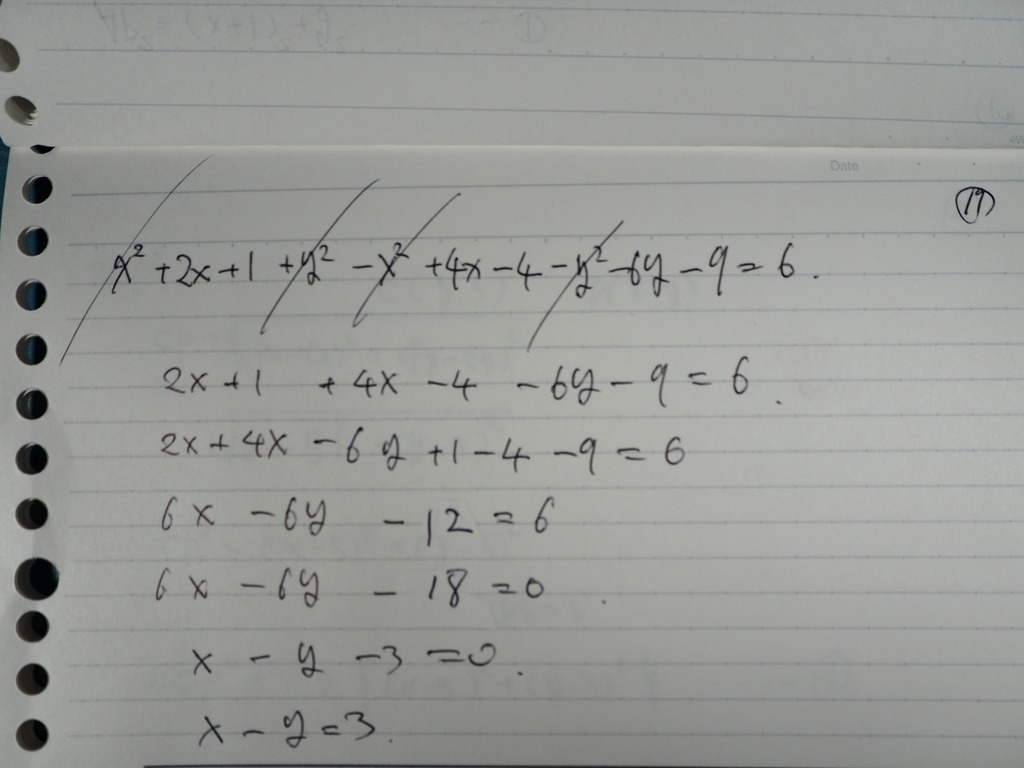 Date
19
x² + 2x + 1 + y² - x² + 4x - 4 - y² - 6y - 9 = 6.
2x + 1 + 4x - 4 - 6y - 9 = 6.
2x + 4x - 6y + 1 - 4 - 9 = 6
6x - 6y - 12 = 6
6x - 6y - 18 = 0.
x - y - 3 = 0.
x - y = 3.